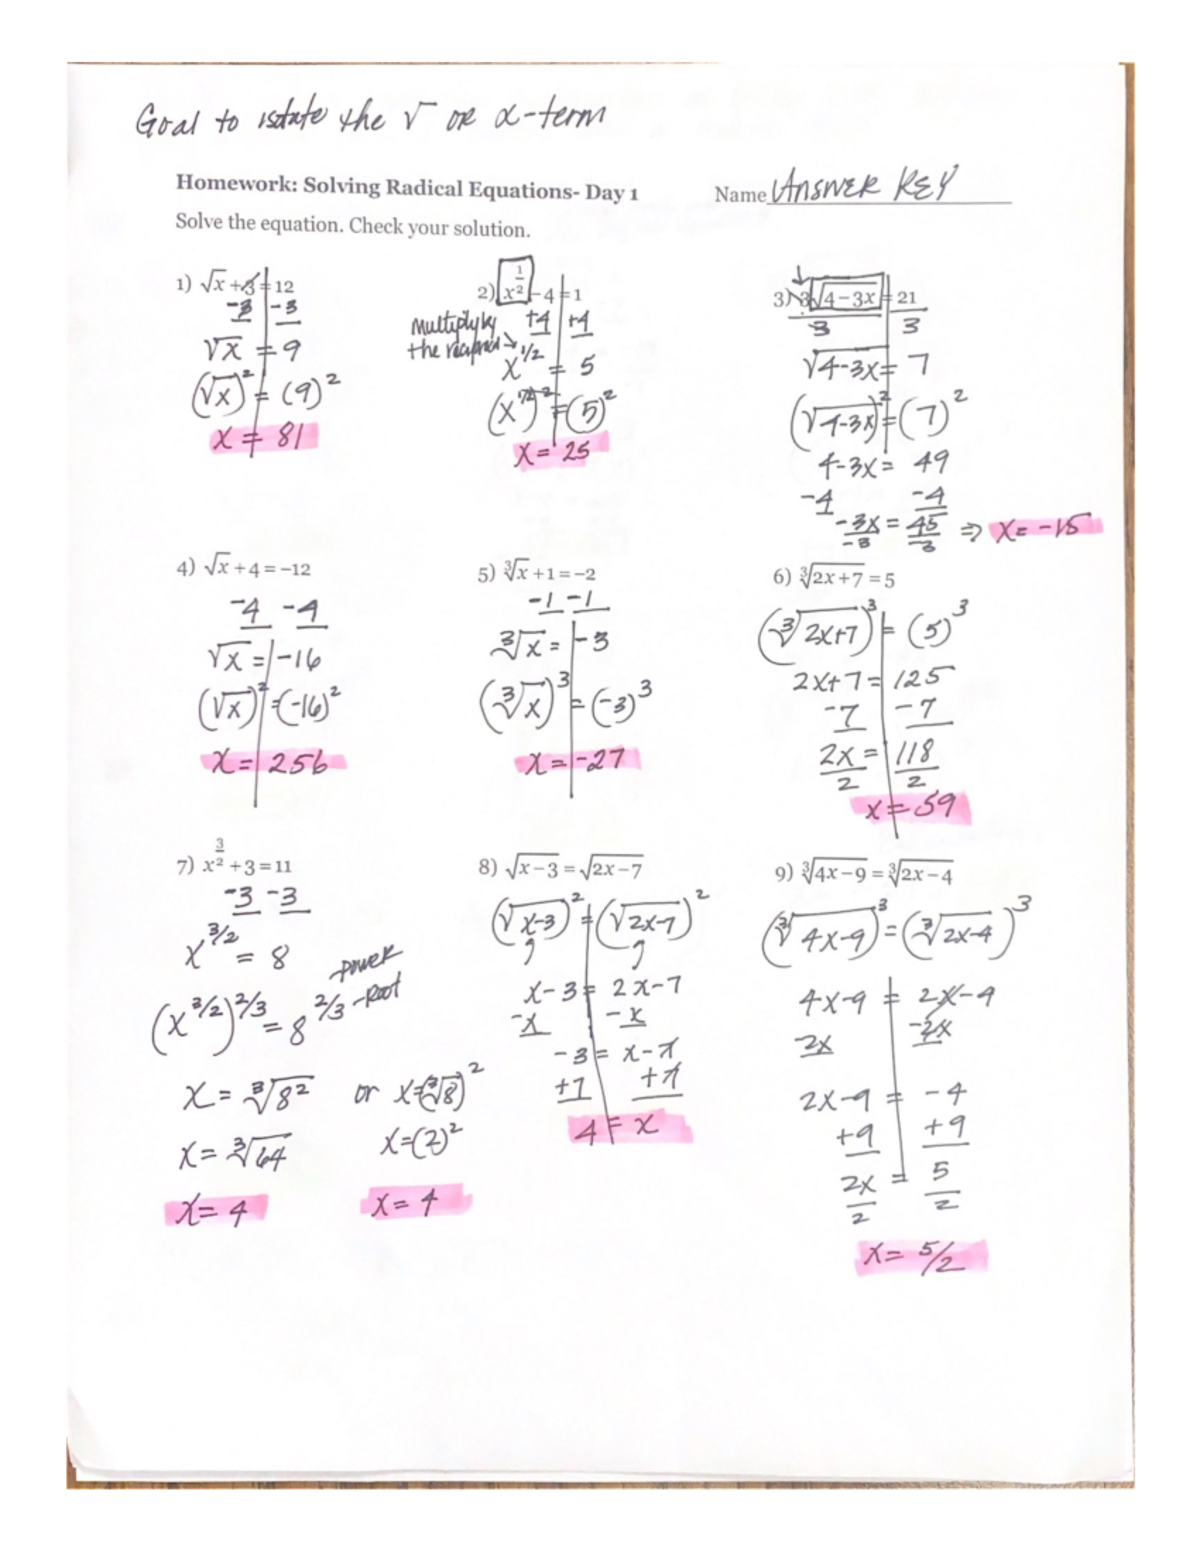 Goal to isolate the √ or x-term
Homework: Solving Radical Equations- Day 1 Name ANSWER KEY
Solve the equation. Check your solution.
1) √x + 3 = 12
-3 | -3
√x = 9
(√x)² = (9)²
x = 81
2) x^(1/2) - 4 = 1
Multiply by +4 | +4
the reciprocal
x^(1/2) = 5
(x^(1/2))² = (5)²
x = 25
3) 3√(4-3x) = 21
3 | 3
√(4-3x) = 7
(√(4-3x))² = (7)²
4-3x = 49
-4 -4
-3x = 45 ⇒ x = -15
-3 -3
4) √x + 4 = -12
-4 -4
√x = -16
(√x)² = (-16)²
x = 256
5) ∛x + 1 = -2
-1 -1
∛x = -3
(∛x)³ = (-3)³
x = -27
6) ∛(2x+7) = 5
(∛(2x+7))³ = (5)³
2x+7 = 125
-7 -7
2x = 118
2 2
x = 59
7) x^(3/2) + 3 = 11
-3 -3
x^(3/2) = 8
(x^(3/2))^(2/3) = 8^(2/3) -power
-root
x = ∛8² or x = (∛8)²
x = ∛64 x = (2)²
x = 4 x = 4
8) √(x-3) = √(2x-7)
(√(x-3))² = (√(2x-7))²
x-3 = 2x-7
-x -x
-3 = x-7
+7 +7
4 = x
9) ∛(4x-9) = ∛(2x-4)
(∛(4x-9))³ = (∛(2x-4))³
4x-9 = 2x-4
2x -2x
2x-9 = -4
+9 +9
2x = 5
2 2
x = 5/2